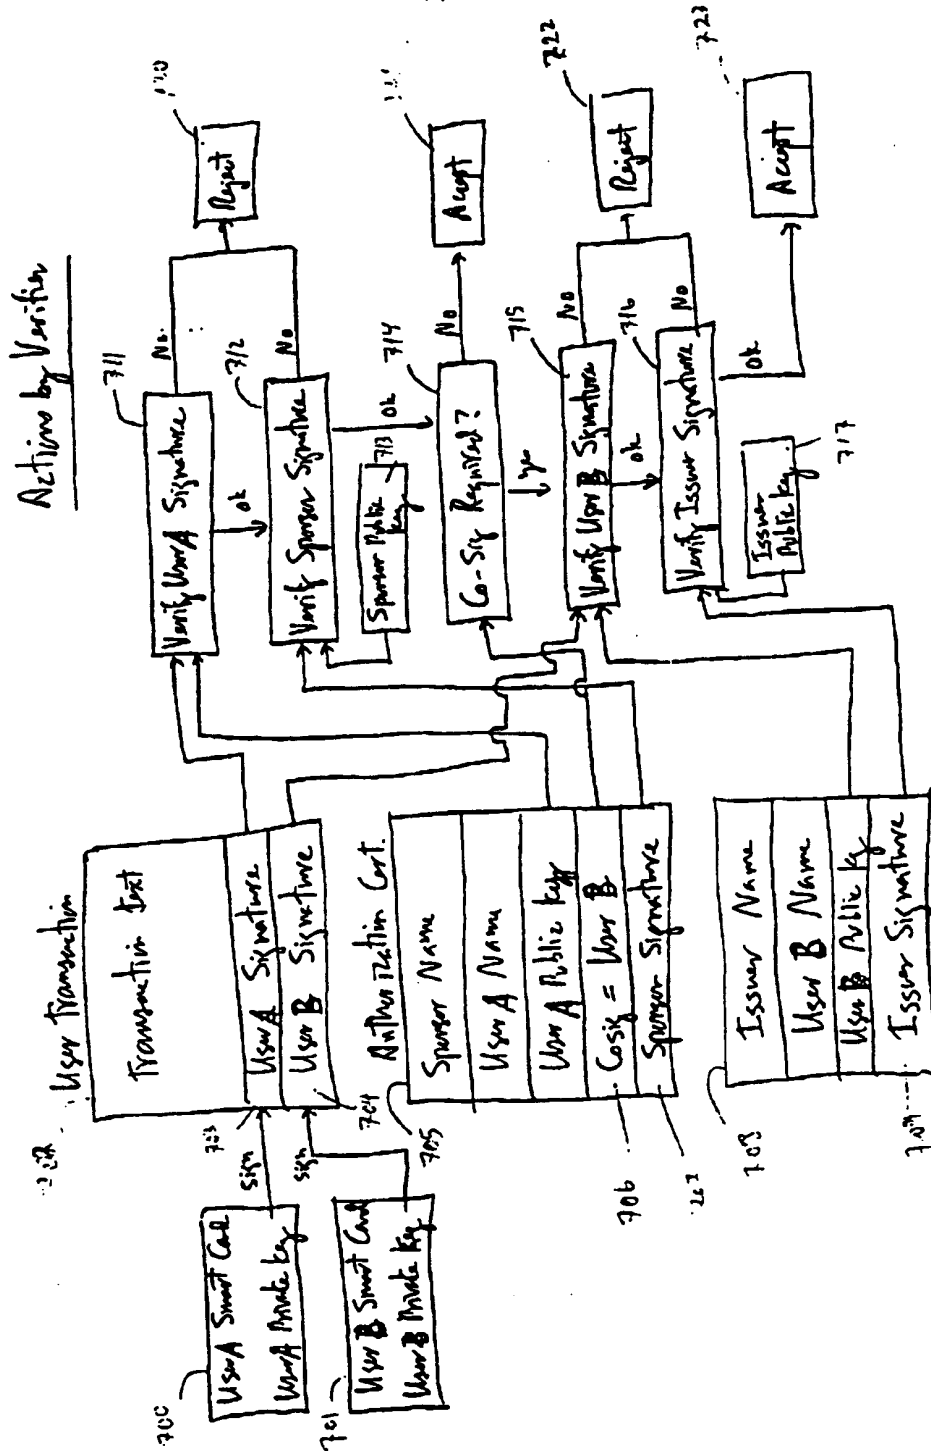 Actions by Verifier
User Transaction
Transaction Text
User A Signature
User B Signature
703
704
700
User A Smart Card
User A Private Key
sign
701
User B Smart Card
User B Private Key
sign
Authorization Cert.
705
Sponsor Name
User A Name
User A Public Key
706
Cosig = User B
Sponsor Signature
708
Issuer Name
User B Name
User B Public Key
Issuer Signature
711
Verify User A Signature
No.
ok
712
Verify Sponsor Signature
No
ok
713
Sponsor Public
Key
714
Co-Sig Required?
No
yes
715
Verify User B Signature
No
ok
716
Verify Issuer Signature
No
ok
717
Issuer
Public Key
Reject
Accept
722
Reject
723
Accept